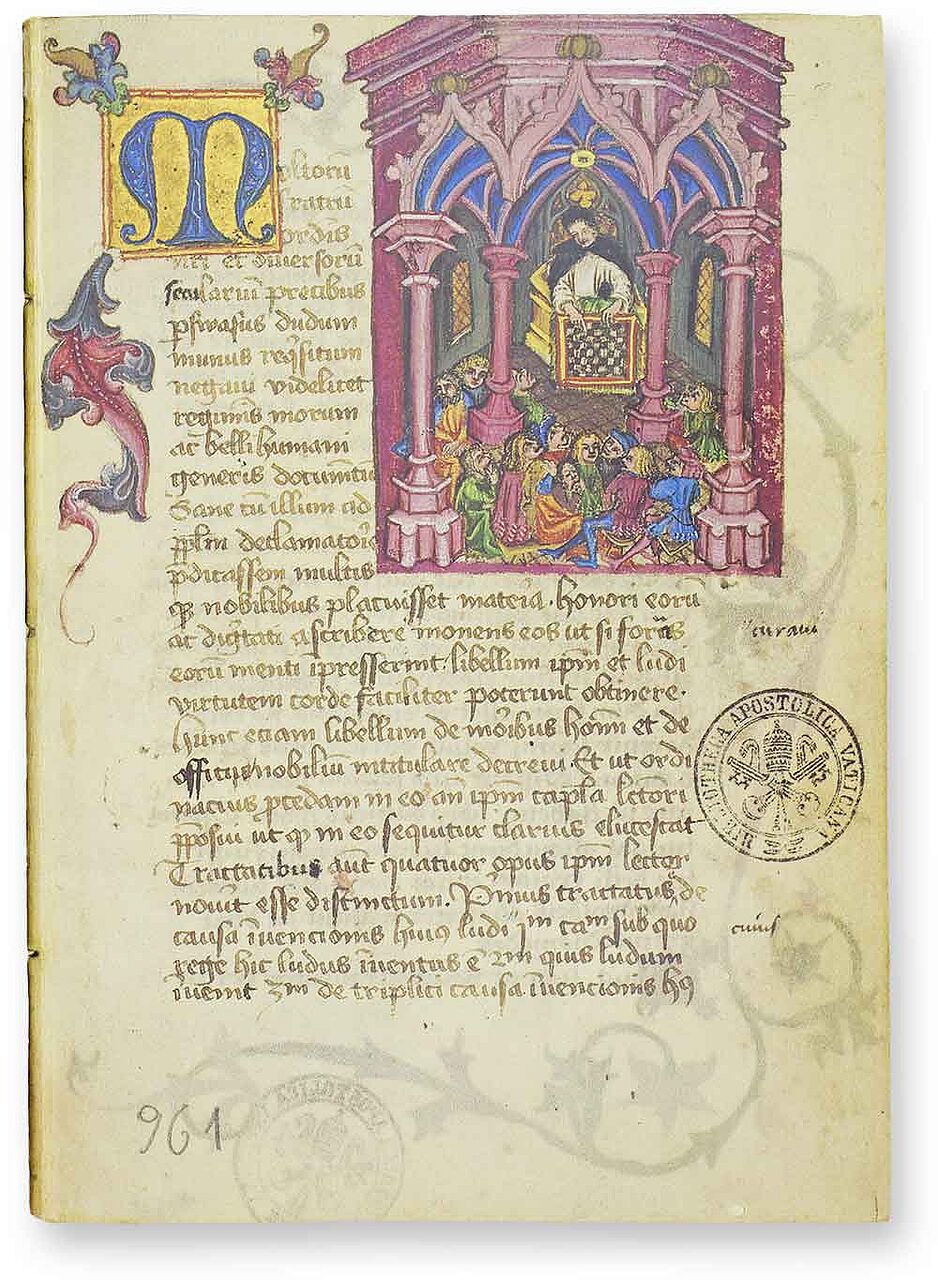 M
ltorū
ratrū
ordīs
nr̄i et diuersorū
secularium precibus
ꝑsuasus dudum
munus reqͥsitum
negaui videlicet
regiminis morum
ac belli humani
generis documētū
Sane cū illum ad
pplm̄ declamatorie
p̄dicassem multis
qꝫ nobilibus placuisset materia. honori eorū
ac dignitati ascribere monens eos ut si formas
eorū menti īpresserint. libellum ip̄m et ludi
virtutem corde faciliter poterunt obtinere.
Hunc eciam libellum de moribus hom̄ et de
officijs nobiliū intitulare decreui. Et ut ordi
nacius ꝓcedam in eo an̄ ip̄m capl̄a lectori
ꝓposui ut qͩ in eo sequitur clarius elucescat
Tractatibus aūt quatuor opus ip̄m lector
nouit esse distinctum. Primus tractatus de
causa īuencionis huiꝰ ludi jm caᵐ sub quo
rege hic ludus īuentus ē 2m quis ludum
īuenit 3m de triplici causa īuencionis hꝰ
curaui
cuius
BIBLIOTHECA APOSTOLICA VATICANA
961